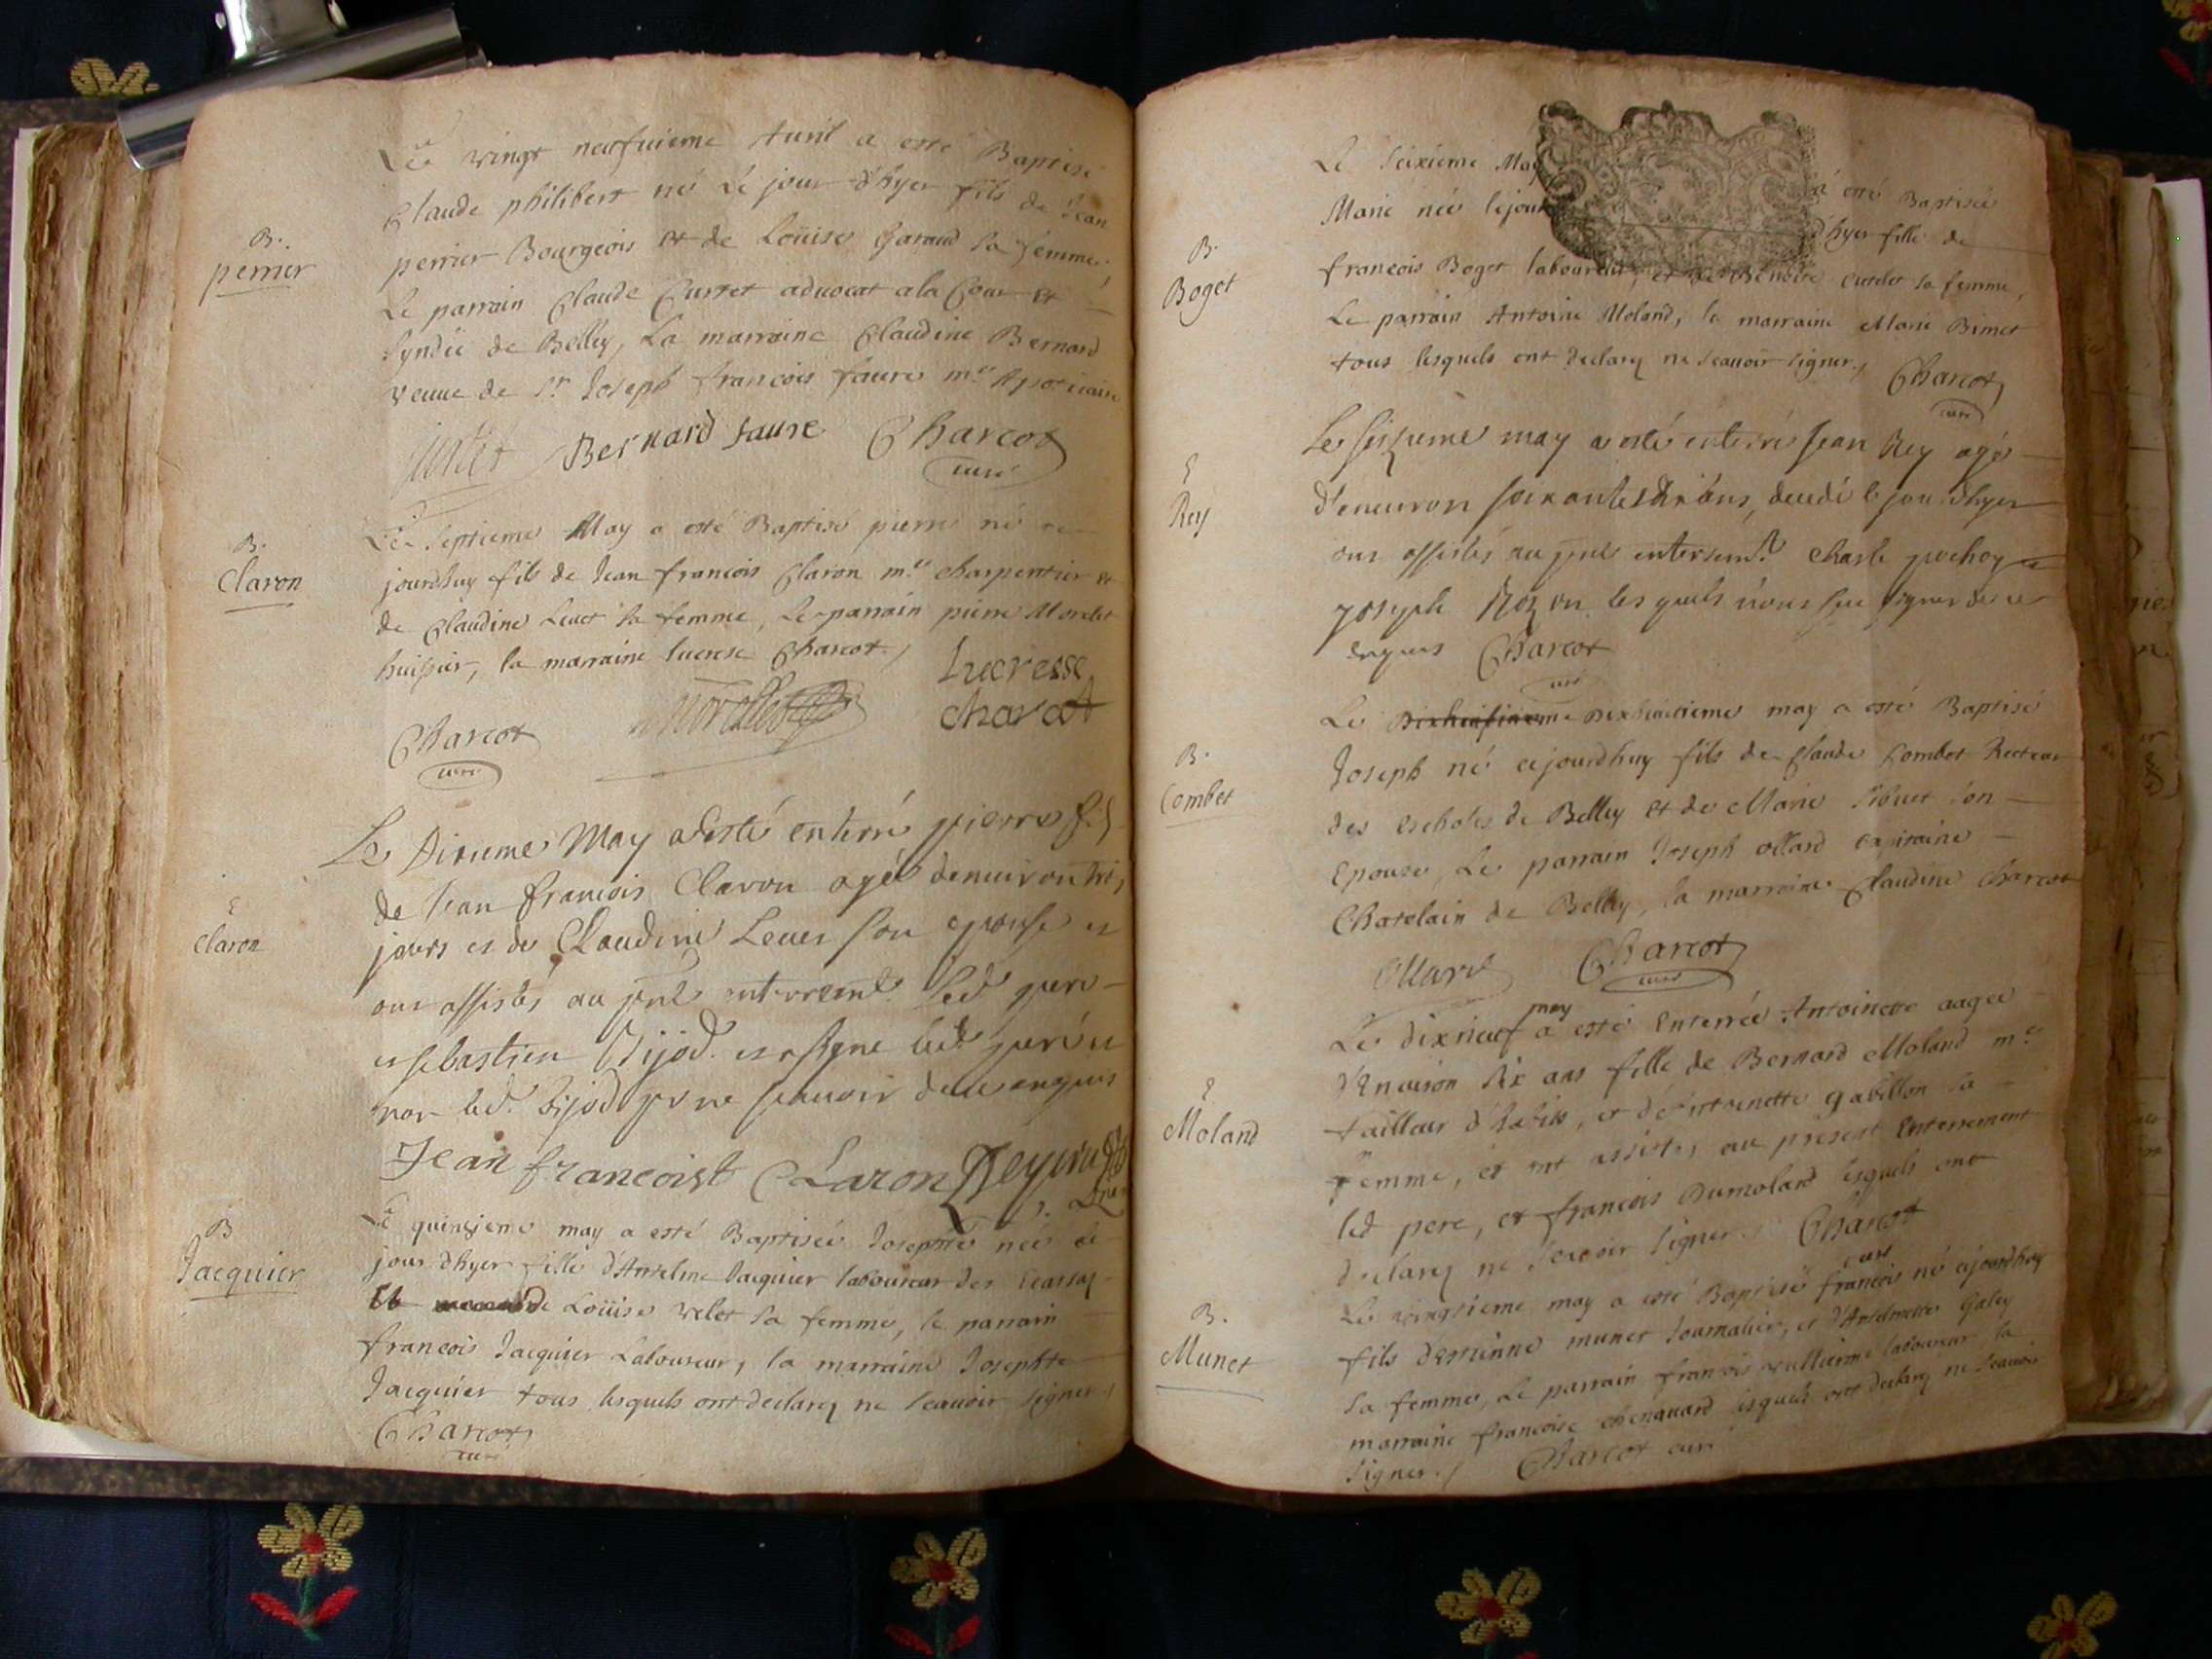 B.
perrier
Le vingt neufuieme Auril a esté Baptisé
Claude philibert né Le jour d'hyer fils de Jean
perrier Bourgeois et de Loüise Garaud sa femme,
Le parrain Claude Curtet aduocat a la Cour et
Syndic de Belley, La marraine Claudine Bernard
veuue de Sr Joseph francois faure me Apoticaire
Bernard faure Charcot
curé
B.
Claron
Le septieme May a esté Baptisé pierre né ce
jourdhuy fils de Jean francois Claron me charpentier et
de Claudine Leuet sa femme, Le parrain pierre Morelet
huissier, la marraine lucresse Charcot./
Lucresse
charcot
Charcot
curé
E
Claron
Le Dixieme May a esté enterré pierre fils
de Jean francois Claron agé denuiron trois
jours et de Claudine Leuet son epouse et
ont assistés au pnt enterremt. led pere
et sebastien Bijod. et a signé led. pere et
non led. bijod pr ne scauoir de ce enquis
Jean francoist Claron
B
Jacquier
Le quinzieme may a esté Baptisée Josephte née le
jour d'hyer fille d'Anselme Jacquier laboureur des
Et de Loüise velet sa femme, le parrain
francois Jacquier Laboureur, la marraine Josephte
Jacquier tous lesquels ont declarez ne scauoir signer./
Charcot
curé
B.
Boget
Le seixieme May a esté Baptisée
Marie née le jour d'hyer fille de
francois Boget laboureur, et de Benoite sa femme,
Le parrain Antoine Moland, la marraine Marie Bimet
tous lesquels ont declarez ne scauoir signer./ Charcot
curé
E
Rey
Le seizieme may a esté enterré Jean Rey agé
d'enuiron soixante dix ans, decedé le jour d'hyer
ont assistés au pnt enterremt. Charle et
joseph les quels n'ont sceu signer de ce
enquis Charcot
curé
B.
Combet
Le dixhuitieme may a esté Baptisé
Joseph né cejourdhuy fils de Claude Combet Recteur
des escholes de Belley et de Marie Sibuet son
Epouse, Le parrain Joseph ollard capitaine
Chatelain de Belley, la marraine Claudine Charcot
Charcot
curé
E
Moland
Le dixneuf may a esté Enterrée Antoinette aagée
d'Enuiron six ans fille de Bernard Moland me
tailleur d'habits, et d'Antoinette gabillon sa
femme, et ont assistés au present Enterrement
led pere, et francois Dumoland lesquels ont
declarez ne scauoir signer./ Charcot
curé
B.
Munet
Le vingtieme may a esté Baptisé francois né cejourdhuy
fils d'estienne munet Journalier, et d'Anselmette Galey
sa femme, Le parrain francois vullierme laboureur la
marraine francoise chenauard lesquels ont declarez ne scauoir
signer./ Charcot curé